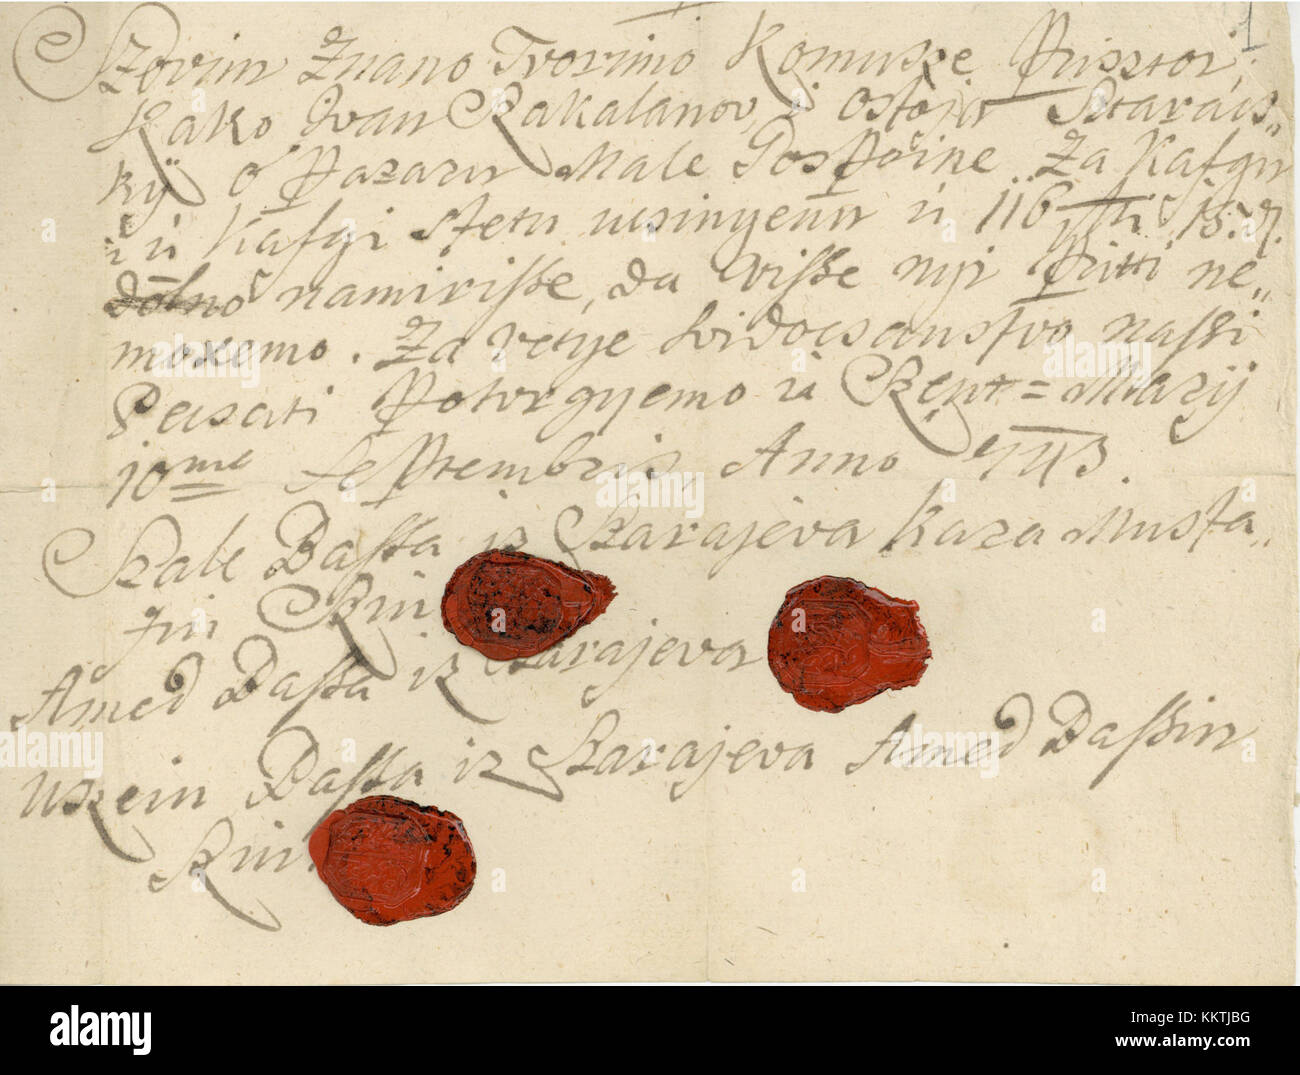 1
Szovim Znano Tvorimo Komusze Prisztoi,
Kako Ivan Szakalanov, i ostoja Sztarács„
ky o Pazaru Male Gospoine. Za Kafgu
i ù Kafgi stetu ucsinyenu ù 116 f 15. x.
dolno namirisse, da visse nyi Pitti ne„
moxemo. Za vetye szvidocsanstvo nassi
Pecsati Potvrgyemo ù Szent=Marij
10me Septembris, Anno 743.
Szale Bassa iz Szarajeva kaza Musta„
fin Szin
Amed Bassa iz Szarajeva
Uszein Bassa iz Szarajeva Amed Bassin
Szin.
alamy
Image ID: KKTJBG
www.alamy.com